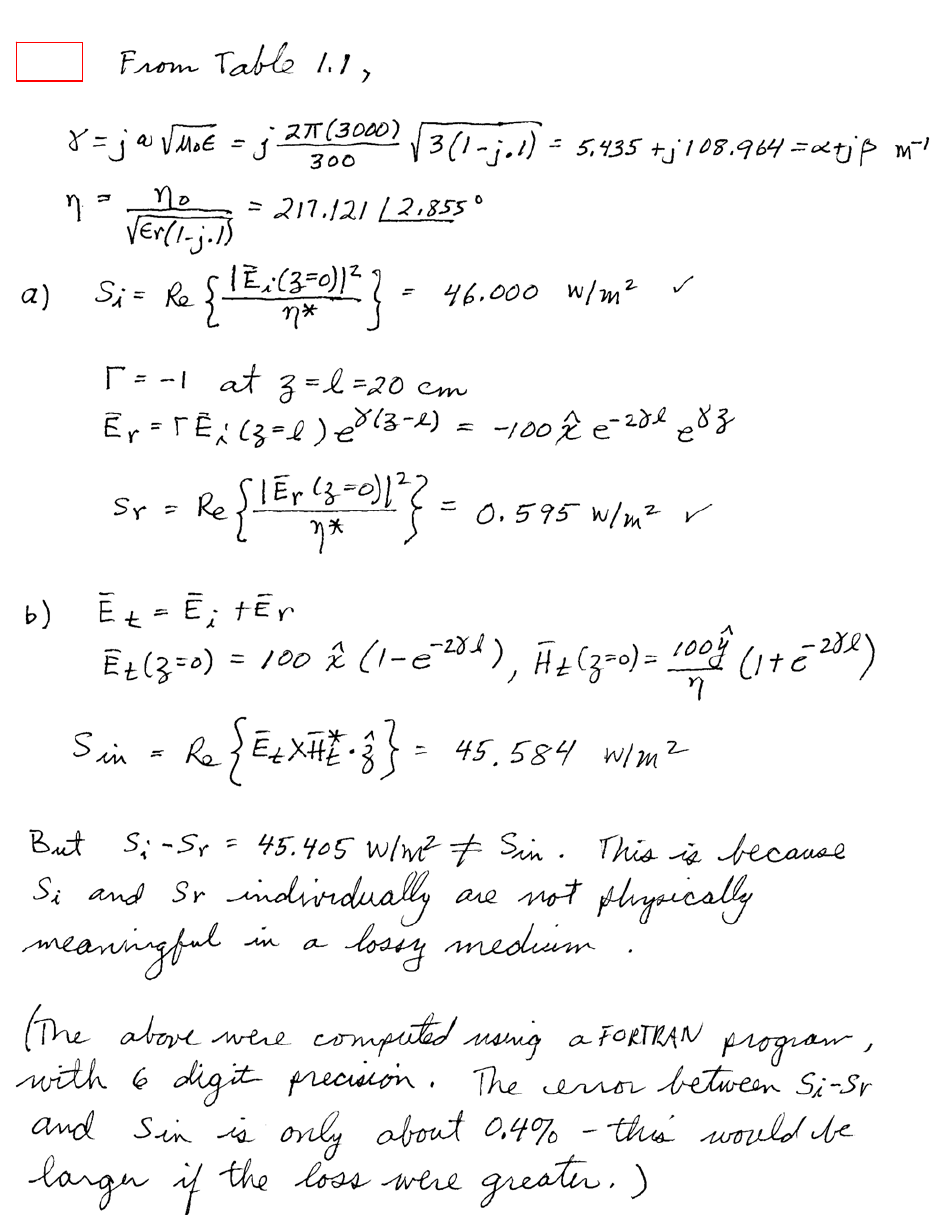 From Table 1.1,
γ = jω√μ₀ϵ = j 2π(3000)/300 √3(1-j.1) = 5.435 + j108.964 = α+jβ m⁻¹
η = η₀/√ϵr(1-j.1) = 217.121 ∠2.855°
a) Si = Re {|Ēi(z=0)|²/η*} = 46.000 W/m² ✓
Γ = -1 at z = l = 20 cm
Ēr = ΓĒi(z=l)e^γ(z-l) = -100 x̂ e^-2γl e^γz
Sr = Re {|Ēr(z=0)|²/η*} = 0.595 W/m² ✓
b) Ēt = Ēi + Ēr
Ēt(z=0) = 100 x̂ (1-e^-2γl), H̄t(z=0) = 100ŷ/η (1+e^-2γl)
Sin = Re {Ēt×H̄t*·ẑ} = 45.584 W/m²
But Si-Sr = 45.405 W/m² ≠ Sin. This is because
Si and Sr individually are not physically
meaningful in a lossy medium.
(The above were computed using a FORTRAN program,
with 6 digit precision. The error between Si-Sr
and Sin is only about 0.4% - this would be
larger if the loss were greater.)